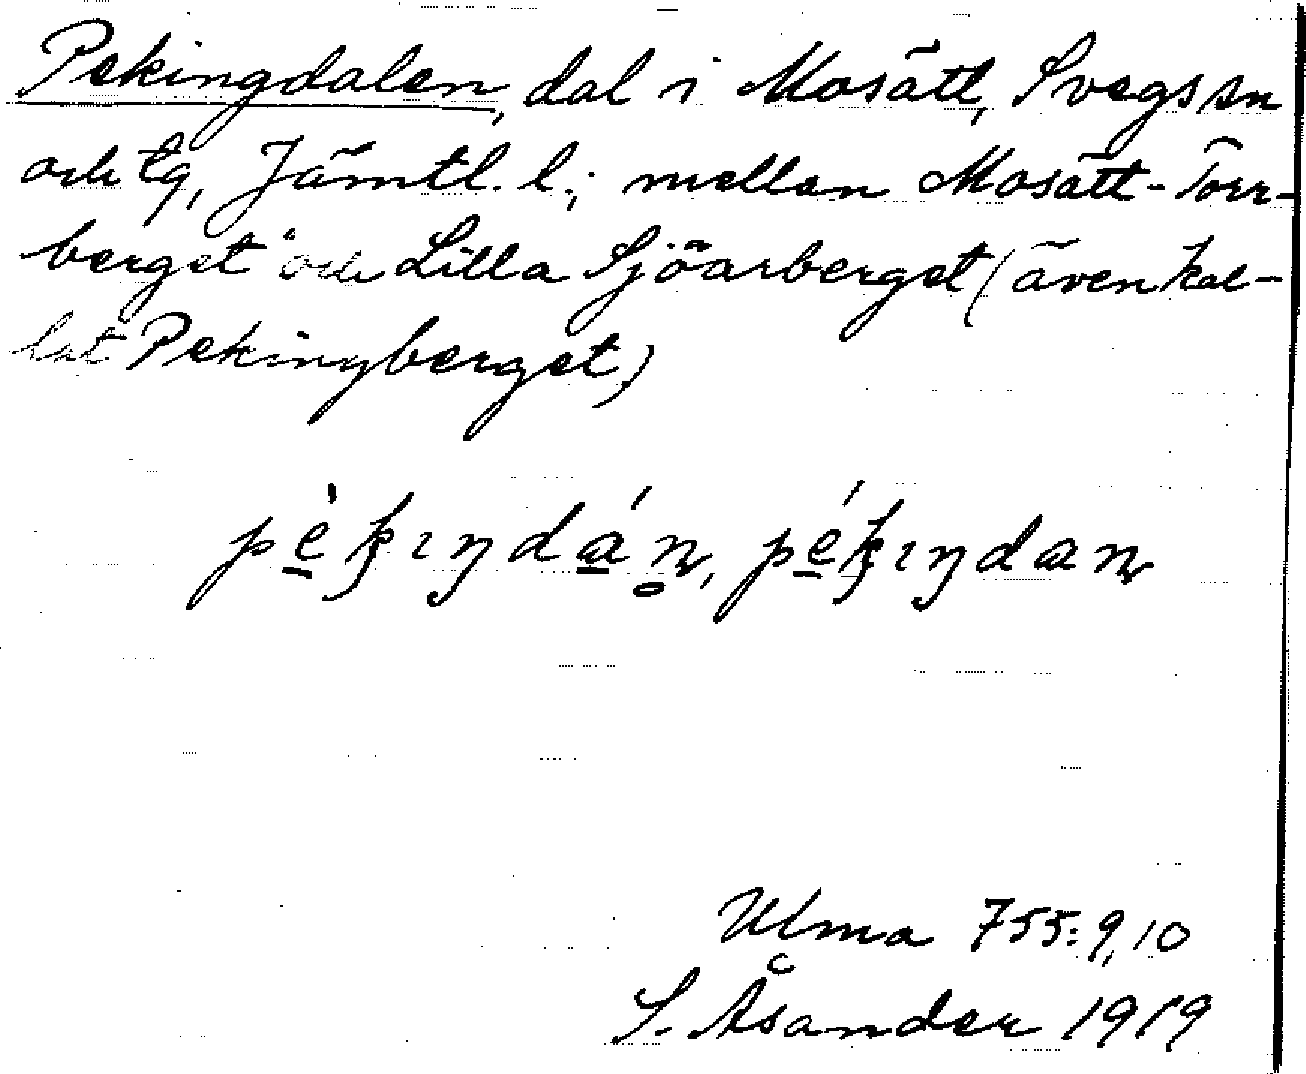 Pekingdalen, dal i Mosätt, Svegs sn
och tg, Jämtl. l.; mellan Mosätt-Torr-
berget och Lilla Sjöarberget (även kal-
lat Pekingberget)
pèkıŋdán, pékıŋdan
Ulma 755:9,10
S. Åsander 1919